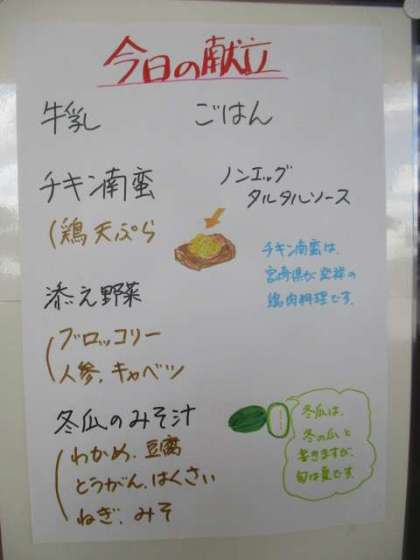 今日の献立
牛乳 ごはん
チキン南蛮
(鶏天ぷら
ノンエッグ
タルタルソース
チキン南蛮は、
宮崎県が発祥の
鶏肉料理です。
添え野菜
ブロッコリー
人参、キャベツ
冬瓜のみそ汁
わかめ、豆腐
とうがん、はくさい
ねぎ、みそ
冬瓜は、
冬の瓜と
書きますが、
旬は夏です。